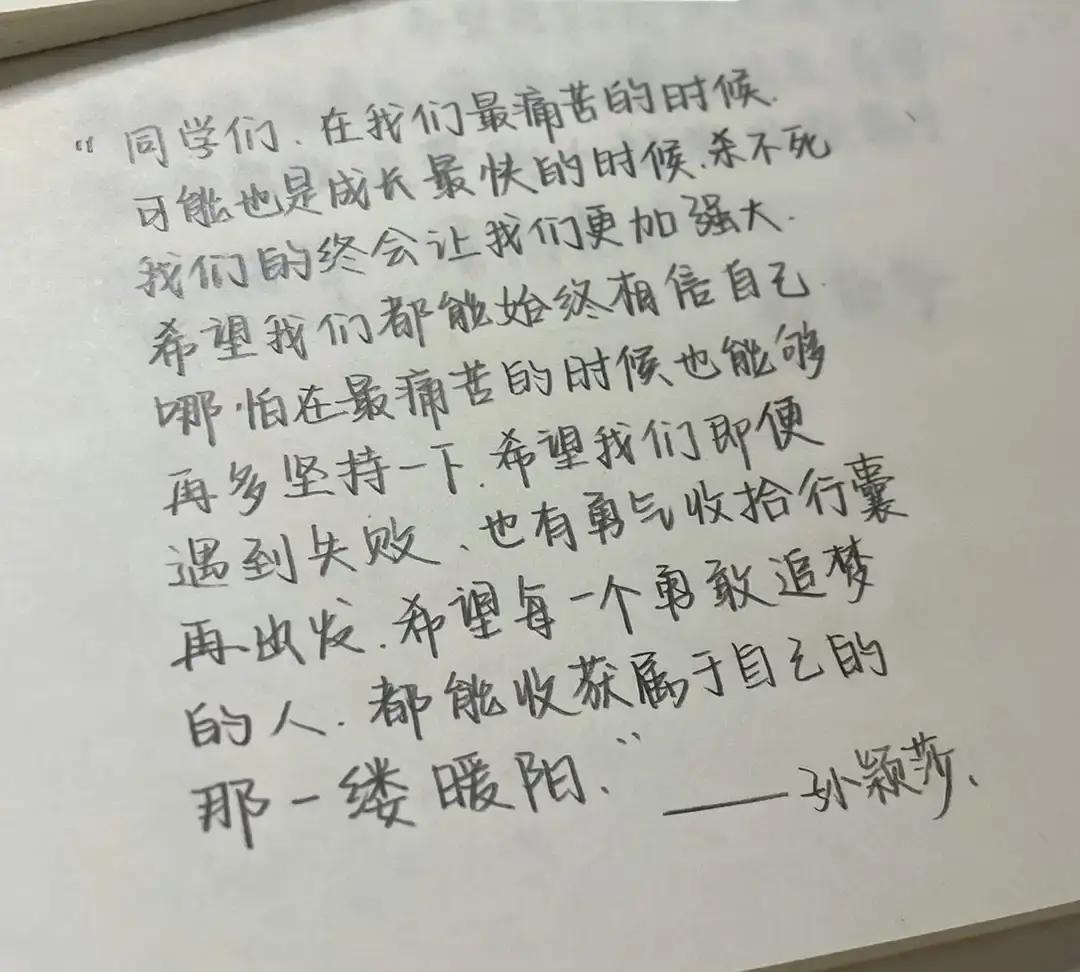 “同学们、在我们最痛苦的时候.
可能也是成长最快的时候.杀不死
我们的终会让我们更加强大.
希望我们都能始终相信自己.
哪怕在最痛苦的时候也能够
再多坚持一下.希望我们即便
遇到失败、也有勇气收拾行囊
再出发.希望每一个勇敢追梦
的人.都能收获属于自己的
那一缕暖阳.”——孙颖莎、